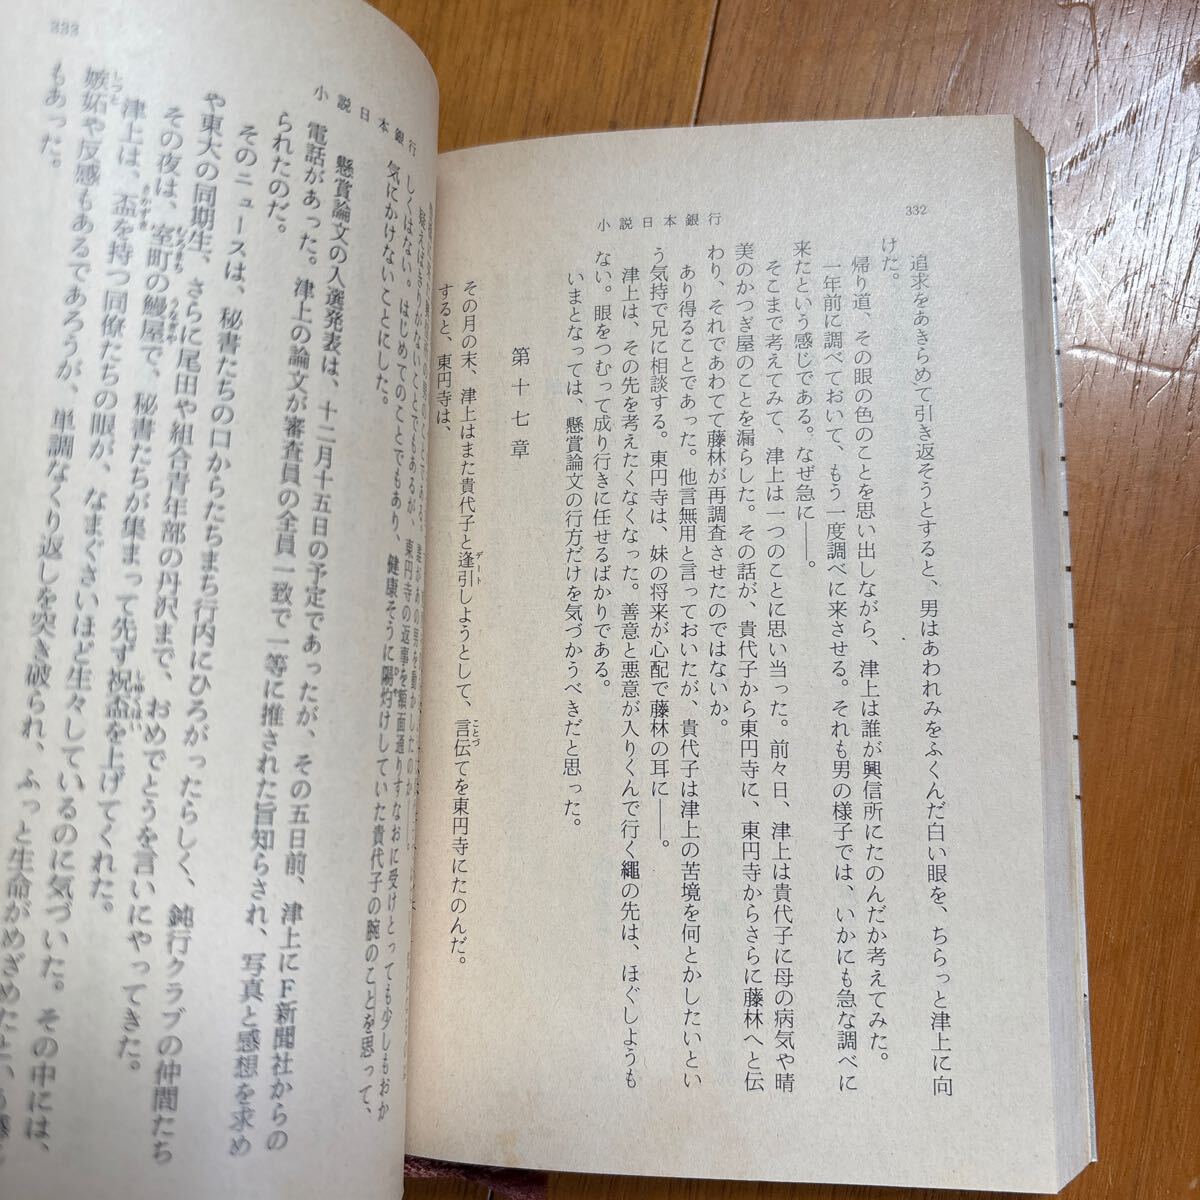 332
小説日本銀行
追求をあきらめて引き返そうとすると、男はあわれみをふくんだ白い眼を、ちらっと津上に向
けた。
帰り道、その眼の色のことを思い出しながら、津上は誰が興信所にたのんだか考えてみた。
一年前に調べておいて、もう一度調べに来させる。それも男の様子では、いかにも急な調べに
来たという感じである。なぜ急に――。
そこまで考えてみて、津上は一つのことに思い当った。前々日、津上は貴代子に母の病気や晴
美のかつぎ屋のことを漏らした。その話が、貴代子から東円寺に、東円寺からさらに藤林へと伝
わり、それであわてて藤林が再調査させたのではないか。
あり得ることであった。他言無用と言っておいたが、貴代子は津上の苦境を何とかしたいとい
う気持で兄に相談する。東円寺は、妹の将来が心配で藤林の耳に――。
津上は、その先を考えたくなくなった。善意と悪意が入りくんで行く縄の先は、ほぐしようも
ない。眼をつむって成り行きに任せるばかりである。
いまとなっては、懸賞論文の行方だけを気づかうべきだと思った。
第十七章
その月の末、津上はまた貴代子と逢引しようとして、言伝てを東円寺にたのんだ。
デート
ことづ
すると、東円寺は、
333
小説日本銀行
疑えばきりがないことでもあるが、東円寺の返事を額面通りすなおに受けとっても少しもおか
しくはない。はじめてのことでもあり、健康そうに陽灼けしていた貴代子の腕のことを思って、
気にかけないことにした。
懸賞論文の入選発表は、十二月十五日の予定であったが、その五日前、津上にF新聞社からの
電話があった。津上の論文が審査員の全員一致で一等に推された旨知らされ、写真と感想を求め
られたのだ。
そのニュースは、秘書たちの口からたちまち行内にひろがったらしく、鈍行クラブの仲間たち
や東大の同期生、さらに尾田や組合青年部の丹沢まで、おめでとうを言いにやってきた。
その夜は、室町の鰻屋で、秘書たちが集まって先ず祝盃を上げてくれた。
むろまち
うなぎや
しゅくはい
津上は、盃を持つ同僚たちの眼が、なまぐさいほど生々しているのに気づいた。その中には、
さかずき
嫉妬や反感もあるであろうが、単調なくり返しを突き破られ、ふっと生命がめざめたという感
しっと
もあった。